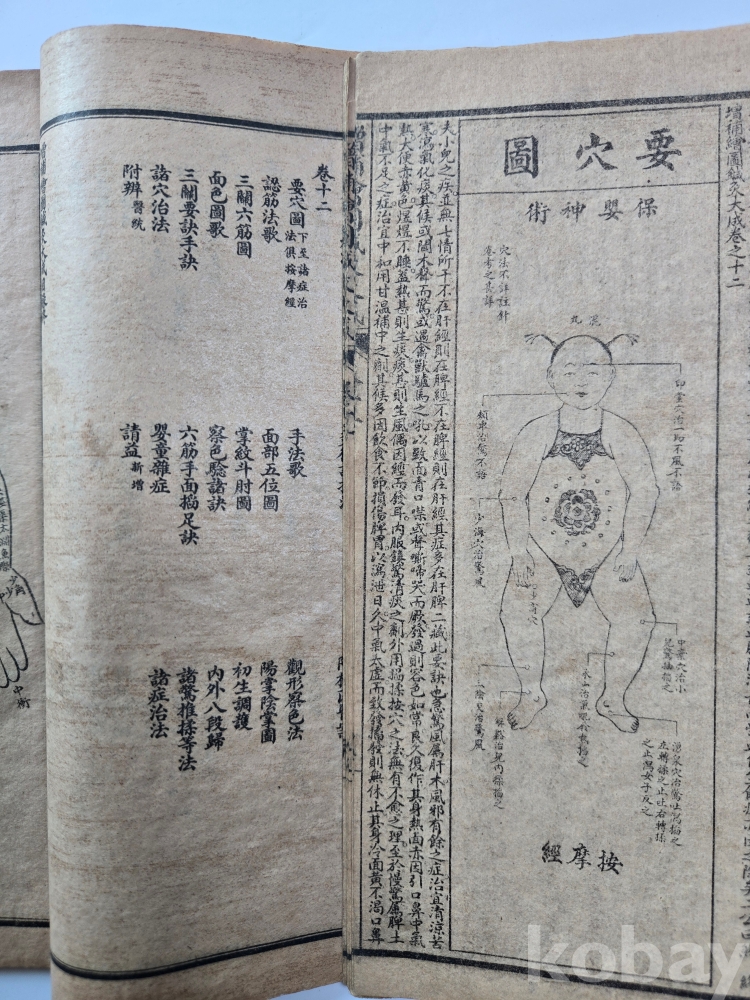 增補繪圖鍼灸大成卷之十二
要穴圖
保嬰神術
穴法不詳註針
卷考之甚詳
印堂穴治一切不風不語
頰車治驚不語
少海穴治驚風
中華穴治小
湧泉穴治驚吐瀉掐之
左轉揉之止吐右轉揉
之止瀉女子反之
按摩經
夫小兒之疾並無七情所干不在肝經則在脾經不在脾經則在肝經其症多在肝脾二臟此要訣也急驚風屬肝木風邪有餘之症治宜清涼苦
寒瀉氣化痰其候或聞木聲而驚或遇禽獸驢馬之吼以致面青口噤或聲嘶啼哭而厥發過則容色如常良久復作其身熱面赤因引口鼻中氣
熱大便赤黃色煜煜不睡蓋熱甚則生痰痰甚則生風偶因經而發耳內服鎮驚清痰之劑外用掐揉按穴之法無有不愈之理至於慢驚屬脾土
中氣不足之症治宜中和用甘溫補中之劑其候多因飲食不節損傷脾胃以瀉泄日久中氣太虛而致發搐發則無休止其身冷面黃不渴口鼻
卷十二
要穴圖 下至諸症治法俱按摩經
手法歌
觀形察色法
認筋法歌
面部五位圖
陽掌陰掌圖
三關六筋圖
掌紋斗肘圖
初生調護
面色圖歌
察色驗諸訣
內外八段歸
三關要訣手訣
六筋手面掐足訣
諸驚推揉等法
諸穴治法
嬰童雜症
諸症治法
附辨 醫統
請益 新增
中衝
kobay